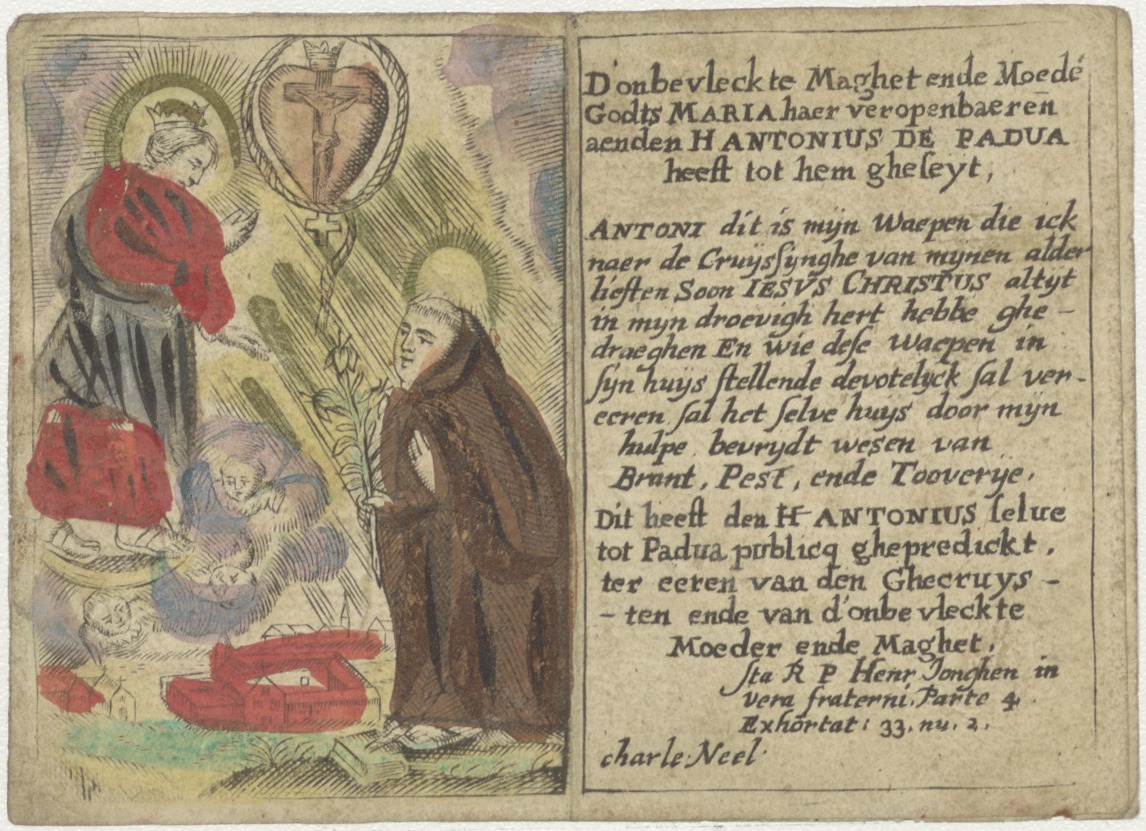 D'onbevleckte Maghet ende Moedē
Godts MARIA haer veropenbaeren
aenden H ANTONIUS DE PADUA
heeft tot hem gheseyt,
ANTONI dit is mijn Waepen die ick
naer de Cruyssynghe van mynen alder
liefsten Soon IESVS CHRISTUS altyt
in mijn droevigh hert hebbe ghe-
draeghen En wie dese Waepen in
syn huys stellende devotelyck sal ver-
eeren sal het selve huys door mijn
hulpe bevrydt wesen van
Brant, Pest, ende Tooverye.
Dit heeft den H ANTONIUS selue
tot Padua publicq ghepredickt,
ter eeren van den Ghecruys-
-ten ende van d'onbevleckte
Moeder ende Maghet.
Ita R P Henr Jonghen in
vera fraterni. Parte 4.
Exhortat: 33. nu. 2.
charle Neel